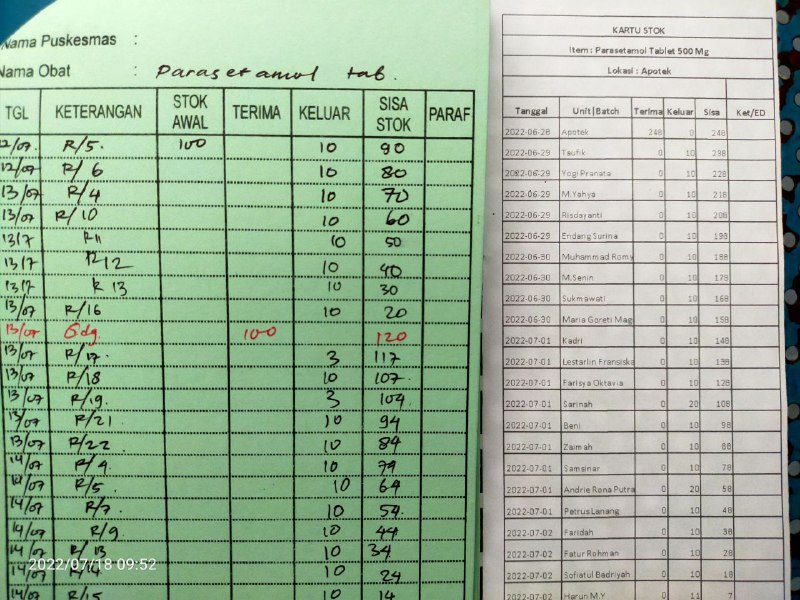 Nama Puskesmas :
Nama Obat : Parasetamol tab.
TGL KETERANGAN STOK AWAL TERIMA KELUAR SISA STOK PARAF
12/07. R/5. 100 10 90
12/07 R/6 10 80
13/07 R/4 10 70
13/07 R/10 10 60
13/7 R11 10 50
13/7 R12 10 40
13/7 R 13 10 30
13/07 R/16 10 20
13/07 Gdg. 100 120
13/07 R/17. 3 117
13/07 R/18 10 107.
13/07 R/19. 3 104
13/07 R/21 10 94
13/07 R/22 10 84
14/07 R/4. 10 74
14/07 R/5. 10 64
14/07 R/7 10 54
14/07 R/9 10 44
14/07 R/13 10 34
14/07 10 24
14/07 R/15 10 14
2022/07/18 09:52
KARTU STOK
Item : Parasetamol Tablet 500 Mg
Lokasi : Apotek
Tanggal Unit|Batch Terima Keluar Sisa Ket/ED
2022-06-28 Apotek 248 0 248
2022-06-29 Taufik 0 10 238
2022-06-29 Yogi Pranata 0 10 228
2022-06-29 M.Yahya 0 10 218
2022-06-29 Risdayanti 0 10 208
2022-06-29 Endang Surina 0 10 198
2022-06-30 Muhammad Romy 0 10 188
2022-06-30 M.Senin 0 10 178
2022-06-30 Sukmawati 0 10 168
2022-06-30 Maria Goreti Mag 0 10 158
2022-07-01 Kadri 0 10 148
2022-07-01 Lestarlin Fransiska 0 10 138
2022-07-01 Farisya Oktavia 0 10 128
2022-07-01 Sarinah 0 20 108
2022-07-01 Beni 0 10 98
2022-07-01 Zaimah 0 10 88
2022-07-01 Samsinar 0 10 78
2022-07-01 Andrie Rona Putra 0 20 58
2022-07-01 Petrus Lanang 0 10 48
2022-07-02 Faridah 0 10 38
2022-07-02 Fatur Rohman 0 10 28
2022-07-02 Sofiatul Badriyah 0 10 18
2022-07-02 Harun M.Y 0 11 7